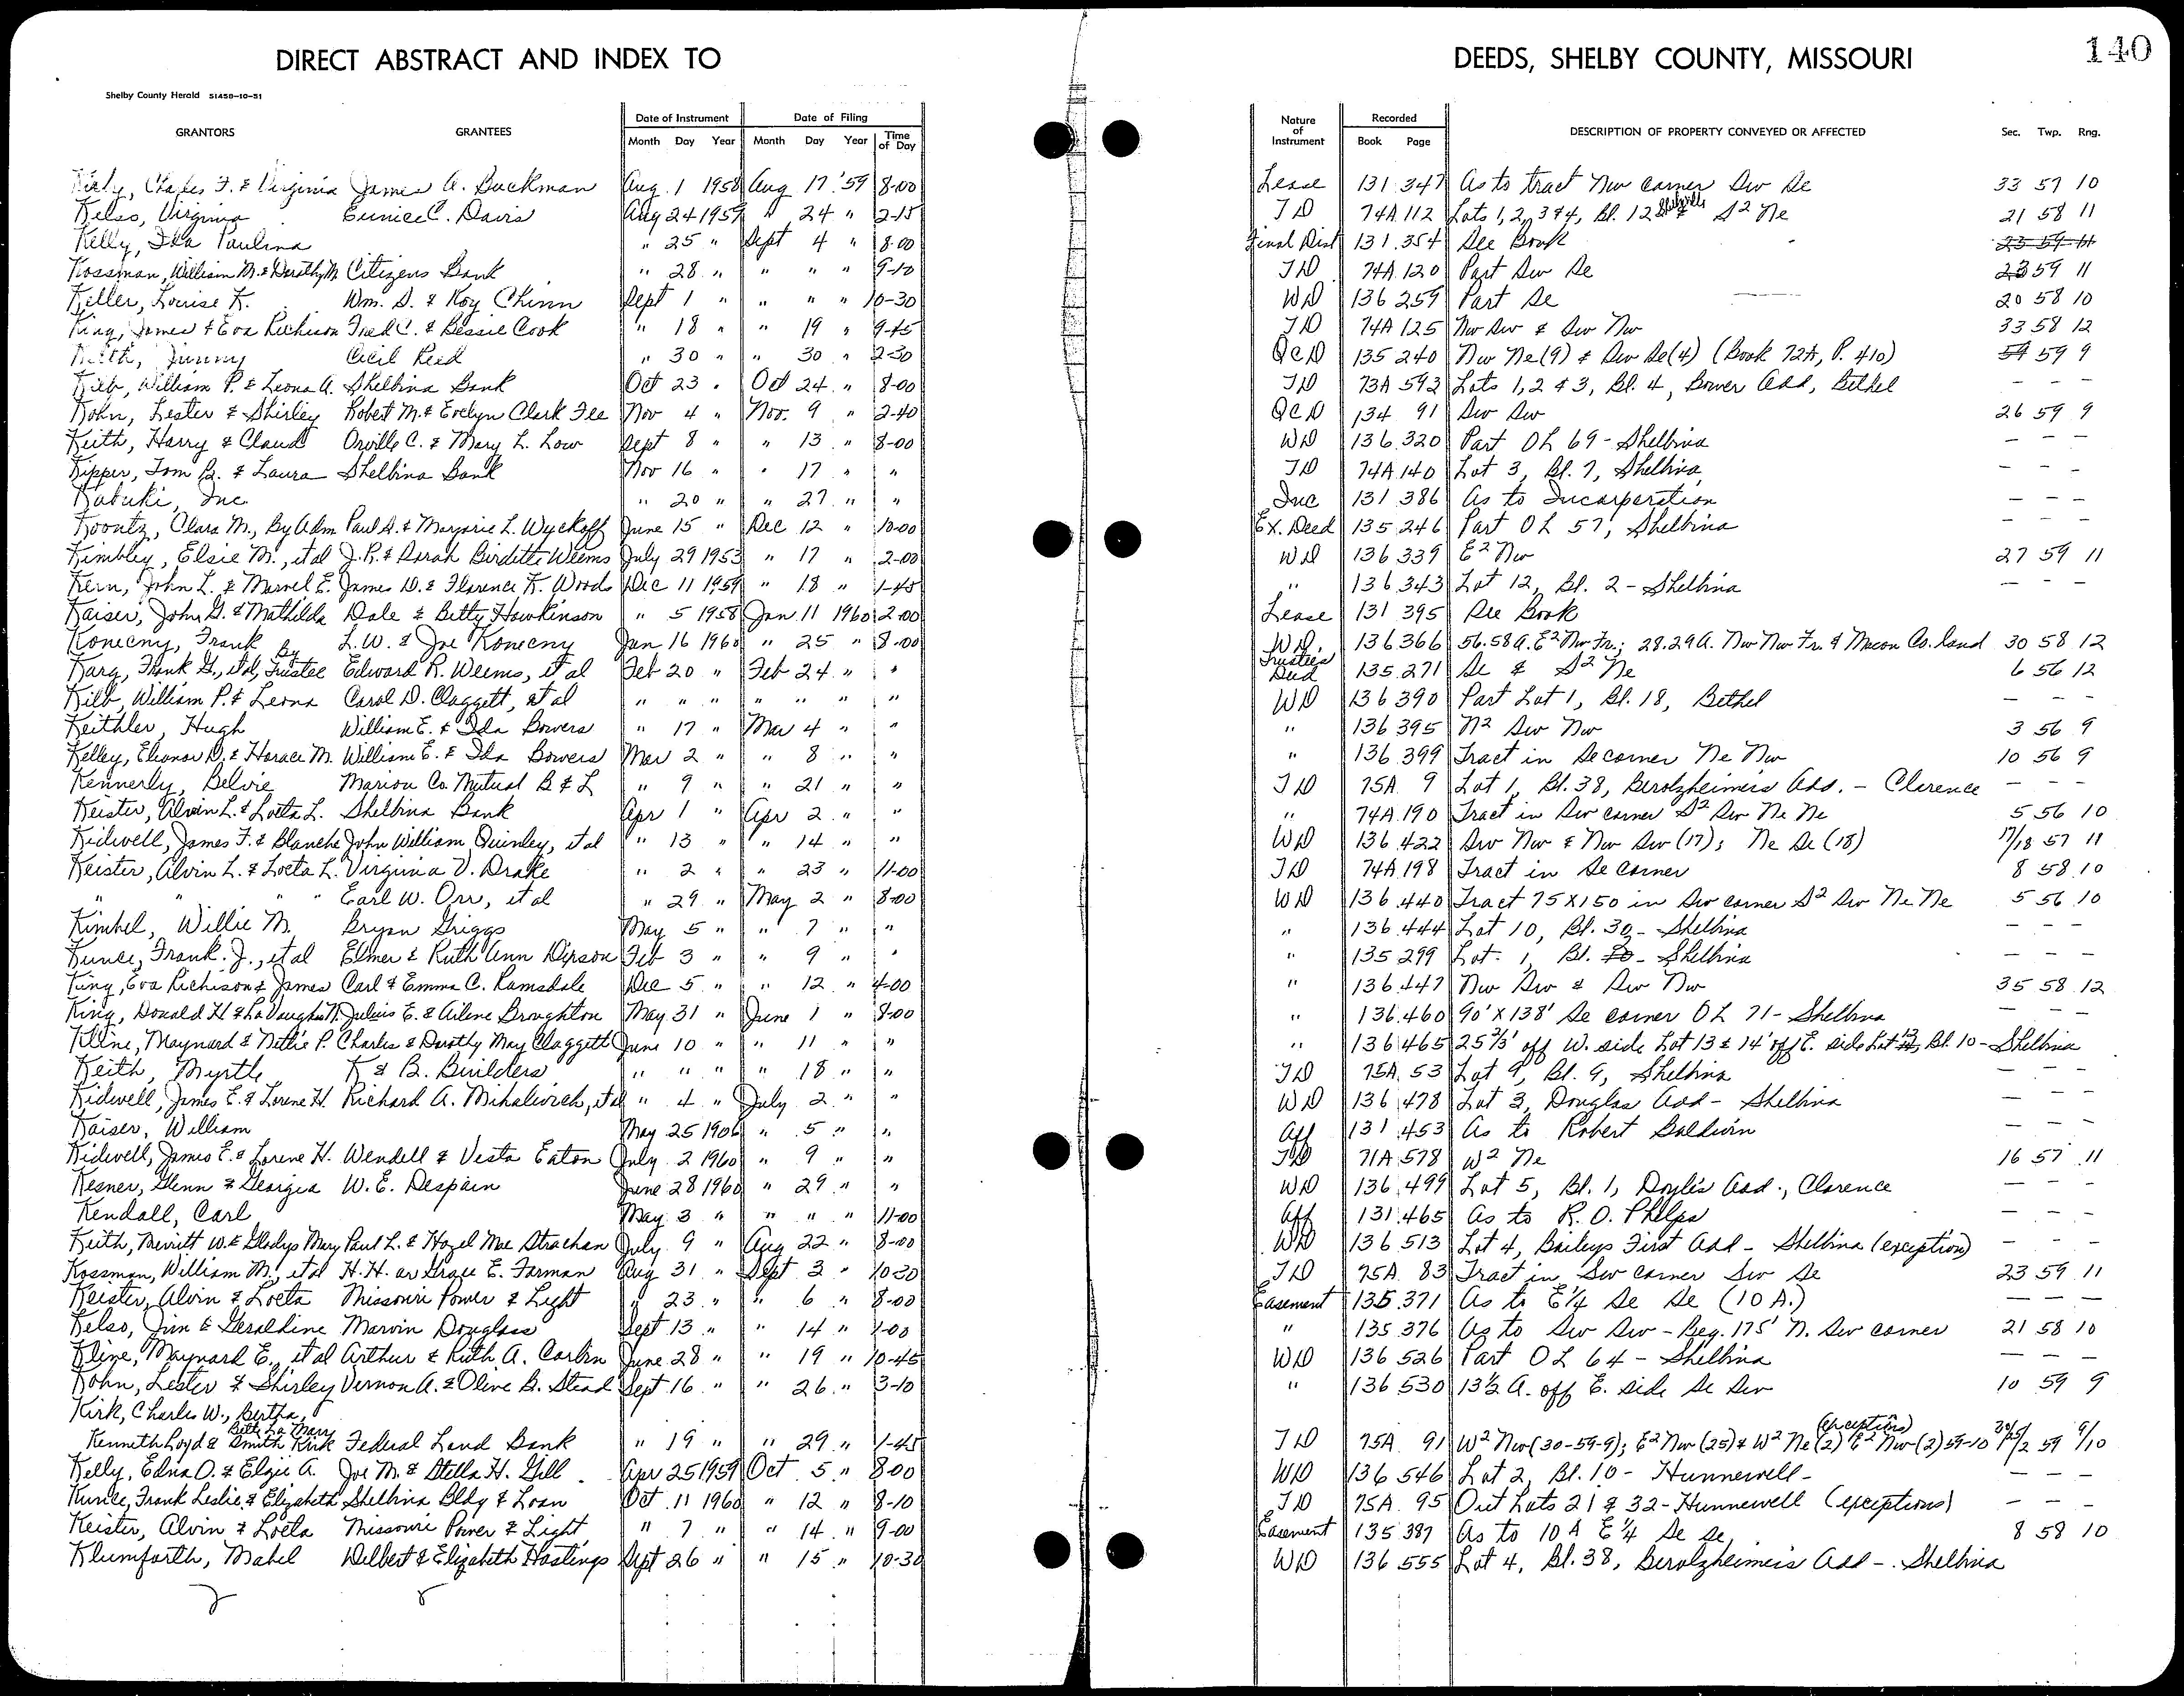 DIRECT ABSTRACT AND INDEX TO DEEDS, SHELBY COUNTY, MISSOURI 140
Shelby County Herald 51458-10-51
Date of Instrument Date of Filing Nature of Instrument Recorded
GRANTORS GRANTEES Month Day Year Month Day Year Time of Day Book Page DESCRIPTION OF PROPERTY CONVEYED OR AFFECTED Sec. Twp. Rng.
Charles F. & Virginia James A. Buckman Aug. 1 1958 Aug 17 '59 8-00 Lease 131 347 As to tract Nw corner Sw Se 33 57 10
Kelso, Virginia Eunice C. Davis Aug 24 1959 " 24 " 2-15 TD 74A 112 Lots 1, 2, 3 & 4, Bl. 12 & S2 Ne 21 58 11
Kelly, Ida Paulina " 25 " Sept 4 " 8-00 Final Dist 131 354 See Book 23 59 11
Kossman, William M. & Dorothy M. Citizens Bank " 28 " " " " 9-10 TD 74A 120 Part Sw Se 23 59 11
Keller, Louise K. Wm. S. & Roy Chinn Sept 1 " " " " 10-30 WD 136 259 Part Se 20 58 10
King, James & Eva Richison Fred C. & Bessie Cook " 18 " " 19 " 9-45 TD 74A 125 Nw Sw & Sw Nw 33 58 12
Keith, Jimmy Cecil Reid " 30 " " 30 " 2-30 QCD 135 240 Nw Ne (9) & Sw Se (4) (Book 72A, P. 410) 59 9
Kilb, William P. & Leona A. Shelbina Bank Oct 23 " Oct 24 " 8-00 TD 73A 592 Lots 1, 2 & 3, Bl. 4, Bower Add, Bethel - - -
Kohn, Lester & Shirley Robert M. & Evelyn Clark Fee Nov 4 " Nov. 9 " 2-40 QCD 134 91 Sw Sw 26 59 9
Keith, Harry & Claud Orville C. & Mary L. Low Sept 8 " " 13 " 8-00 WD 136 320 Part OL 69 - Shelbina - - -
Kipper, Tom B. & Laura Shelbina Bank Nov 16 " " 17 " " TD 74A 140 Lot 3, Bl. 7, Shelbina - - -
Kabuki, Inc. " 20 " " 27 " " Inc 131 386 As to Incorporation - - -
Koontz, Clara M., By Adm Paul D. & Marjorie L. Wyckoff June 15 " Dec 12 " 10-00 Ex. Deed 135 246 Part OL 57, Shelbina - - -
Kimbley, Elsie M., et al J. R. & Sarah Birditte Weems July 29 1953 " 17 " 2-00 WD 136 339 E2 Nw 27 59 11
Kern, John L. & Marvel E. James D. & Florence K. Woods Dec 11 1959 " 18 " 1-45 " 136 343 Lot 12, Bl. 2 - Shelbina - - -
Kaiser, John G. & Mathilda Dale & Betty Hawkinson " 5 1958 Jan 11 1960 2-00 Lease 131 395 See Book
Konecny, Frank L. W. & Joe Konecny Jan 16 1960 " 25 " 8-00 WD. 136 366 56.58 A. E2 Nw Fr.; 28.29 A. Nw Nw Fr. & Macon Co. land 30 58 12
Karg, Frank G., et al, By Trustee Edward R. Weems, et al Feb 20 " Feb 24 " " Trustees Deed 135 271 Se & S2 Ne 6 56 12
Kilb, William P. & Leona Carol D. Claggett, et al " " " " " " " WD 136 390 Part Lot 1, Bl. 18, Bethel - - -
Keithler, Hugh William E. & Ida Bowers " 17 " Mar 4 " " " 136 395 N2 Sw Nw 3 56 9
Kelley, Eleanor D. & Horace M. William E. & Ida Bowers Mar 2 " " 8 " " " 136 399 Tract in Se corner Ne Nw 10 56 9
Kennerly, Belvie Marion Co. Mutual B & L " 9 " " 21 " " TD 75A 9 Lot 1, Bl. 38, Berolzheimers Add. - Clarence - - -
Keister, Alvin L. & Loeta L. Shelbina Bank Apr 1 " Apr 2 " " " 74A 190 Tract in Sw corner S2 Sw Ne Ne 5 56 10
Kidwell, James F. & Blanche John William Quinley, et al " 13 " " 14 " " WD 136 422 Sw Nw & Nw Sw (17); Ne Se (18) 17/18 57 11
Keister, Alvin L. & Loeta L. Virginia V. Drake " 2 " " 23 " 11-00 TD 74A 198 Tract in Se corner 8 58 10
" " " Earl W. Orr, et al " 29 " May 2 " 8-00 WD 136 440 Tract 75 X 150 in Sw corner S2 Sw Ne Ne 5 56 10
Kimbel, Willie M. Bryan Griggs May 5 " " 7 " " " 136 444 Lot 10, Bl. 30 - Shelbina - - -
Kunce, Frank J., et al Elmer & Ruth Ann Dipson Feb 3 " " 9 " " " 135 299 Lot 1, Bl. - Shelbina - - -
King, Eva Richison & James Carl & Emma C. Ramsdale Dec 5 " " 12 " 4-00 " 136 447 Nw Sw & Sw Nw 35 58 12
King, Donald H. & LaVaughn N. Julius E. & Arlene Broughton May 31 " June 1 " 8-00 " 136 460 90' X 138' Se corner OL 71 - Shelbina - - -
Kline, Maynard & Nettie P. Charles & Dorothy May Claggett June 10 " " 11 " " " 136 465 25 2/3' off W. side Lot 13 & 14' off E. side Lot 12, Bl. 10 - Shelbina
Keith, Myrtle K & B. Builders " " " " 18 " " TD 75A 53 Lot 9, Bl. 9, Shelbina - - -
Kidwell, James E. & Lorene H. Richard A. Mihalevich, et al " 4 " July 2 " " WD 136 478 Lot 3, Douglas Add - Shelbina - - -
Kaiser, William May 25 1906 " 5 " " Aff 131 453 As to Robert Baldwin - - -
Kidwell, James E. & Lorene H. Wendell & Vesta Eaton July 2 1960 " 9 " " TD 71A 578 W2 Ne 16 57 11
Kesner, Glenn & Georgia W. E. Despain June 28 1960 " 29 " " WD 136 499 Lot 5, Bl. 1, Doyle's Add., Clarence - - -
Kendall, Carl May 3 " " " " 11-00 Aff 131 465 As to R. O. Phelps - - -
Keith, Merritt W. & Gladys Mary Paul L. & Hazel Mae Strachan July 9 " Aug 22 " 8-00 WD 136 513 Lot 4, Baileys First Add - Shelbina (exception) - - -
Kossman, William M., et al H. H. or Grace E. Farman Aug 31 " Sept 3 " 10-30 TD 75A 83 Tract in Sw corner Sw Se 23 59 11
Keister, Alvin & Loeta Missouri Power & Light " 23 " " 6 " 8-00 Easement 135 371 As to E1/4 Se Se (10 A.) - - -
Kelso, Jim & Geraldine Marvin Douglass Sept 13 " " 14 " 1-00 " 135 376 As to Sw Sw - Beg. 175' N. Sw corner 21 58 10
Kline, Maynard E., et al Arthur & Ruth A. Carlin June 28 " " 19 " 10-45 WD 136 526 Part OL 64 - Shelbina - - -
Kohn, Lester & Shirley Vernon A. & Olive B. Stead Sept 16 " " 26 " 3-10 " 136 530 13 1/2 A. off E. side Se Sw 10 59 9
Kirk, Charles W., Bertha,
Kenneth Loyd & Smith Kirk Federal Land Bank " 19 " " 29 " 1-45 TD 75A 91 W2 Nw (30-59-9); E2 Nw (25) & W2 Ne (2) E2 Nw (2) 59-10 (exceptions) 30/25/2 59 9/10
Kelly, Edna O. & Elzie A. Joe M. & Stella H. Gill Apr 25 1959 Oct 5 " 8-00 WD 136 546 Lot 2, Bl. 10 - Hunnewell - - - -
Kunce, Frank Leslie & Elizabeth Shelbina Bldg & Loan Oct 11 1960 " 12 " 8-10 TD 75A 95 Out Lots 21 & 32 - Hunnewell (exceptions) - - -
Keister, Alvin & Loeta Missouri Power & Light " 7 " " 14 " 9-00 Easement 135 387 As to 10 A E 1/4 Se Se 8 58 10
Klumforth, Mabel Wilbert & Elizabeth Hastings Sept 26 " " 15 " 10-30 WD 136 555 Lot 4, Bl. 38, Berolzheimers Add - Shelbina